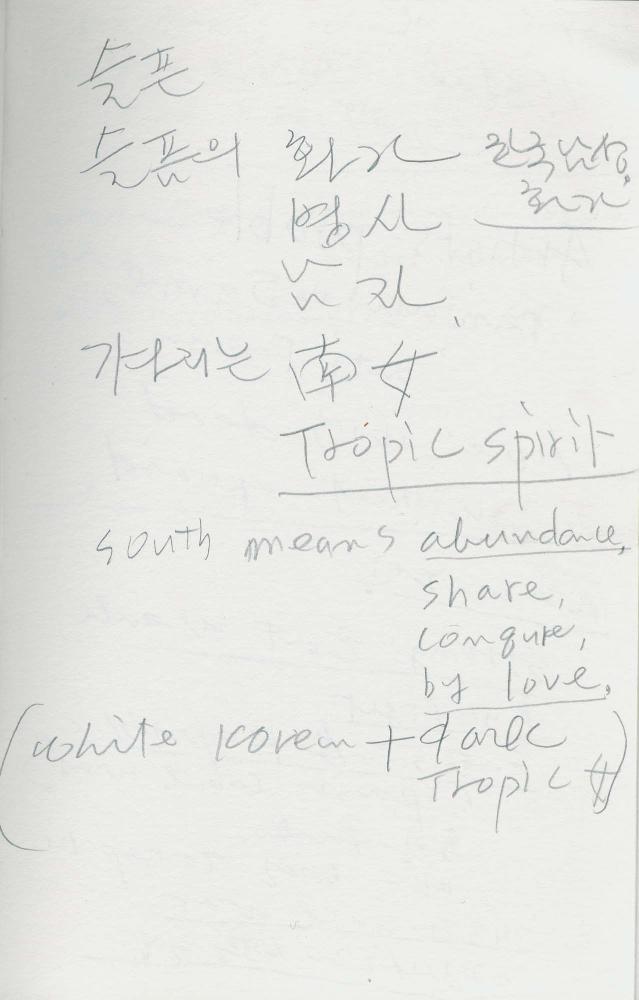 슬픈
슬픔의 화가 한국남성
화가
명사
남자
가다리는 南女
Tropic spirit
south means abundance,
share,
conqure,
by love,
(white Korean + dark
Tropic 女)